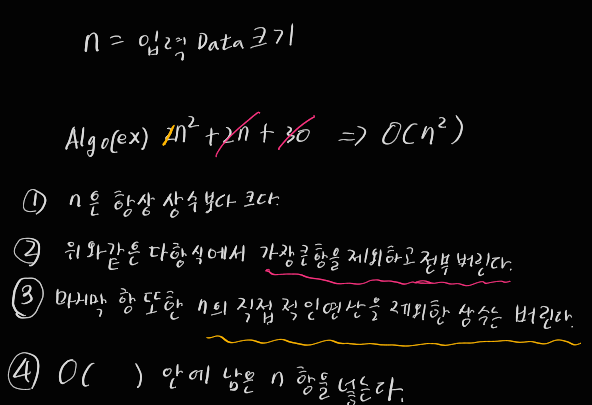 n = 입력 Data 크기
Algo(ex) 2n² + 2n + 30 => O(n²)
① n은 항상 상수보다 크다.
② 위와같은 다항식에서 가장큰항을 제외하고 전부 버린다.
③ 마지막 항 또한 n의 직접적인연산을 제외한 상수는 버린다.
④ O( ) 안에 남은 n 항을 넣는다.